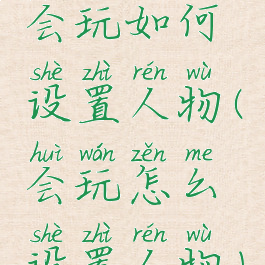 会玩如何
shè zhì rén wù
设置人物(
huì wán zěn me
会玩怎么
shè zhì rén wù
设置人物)